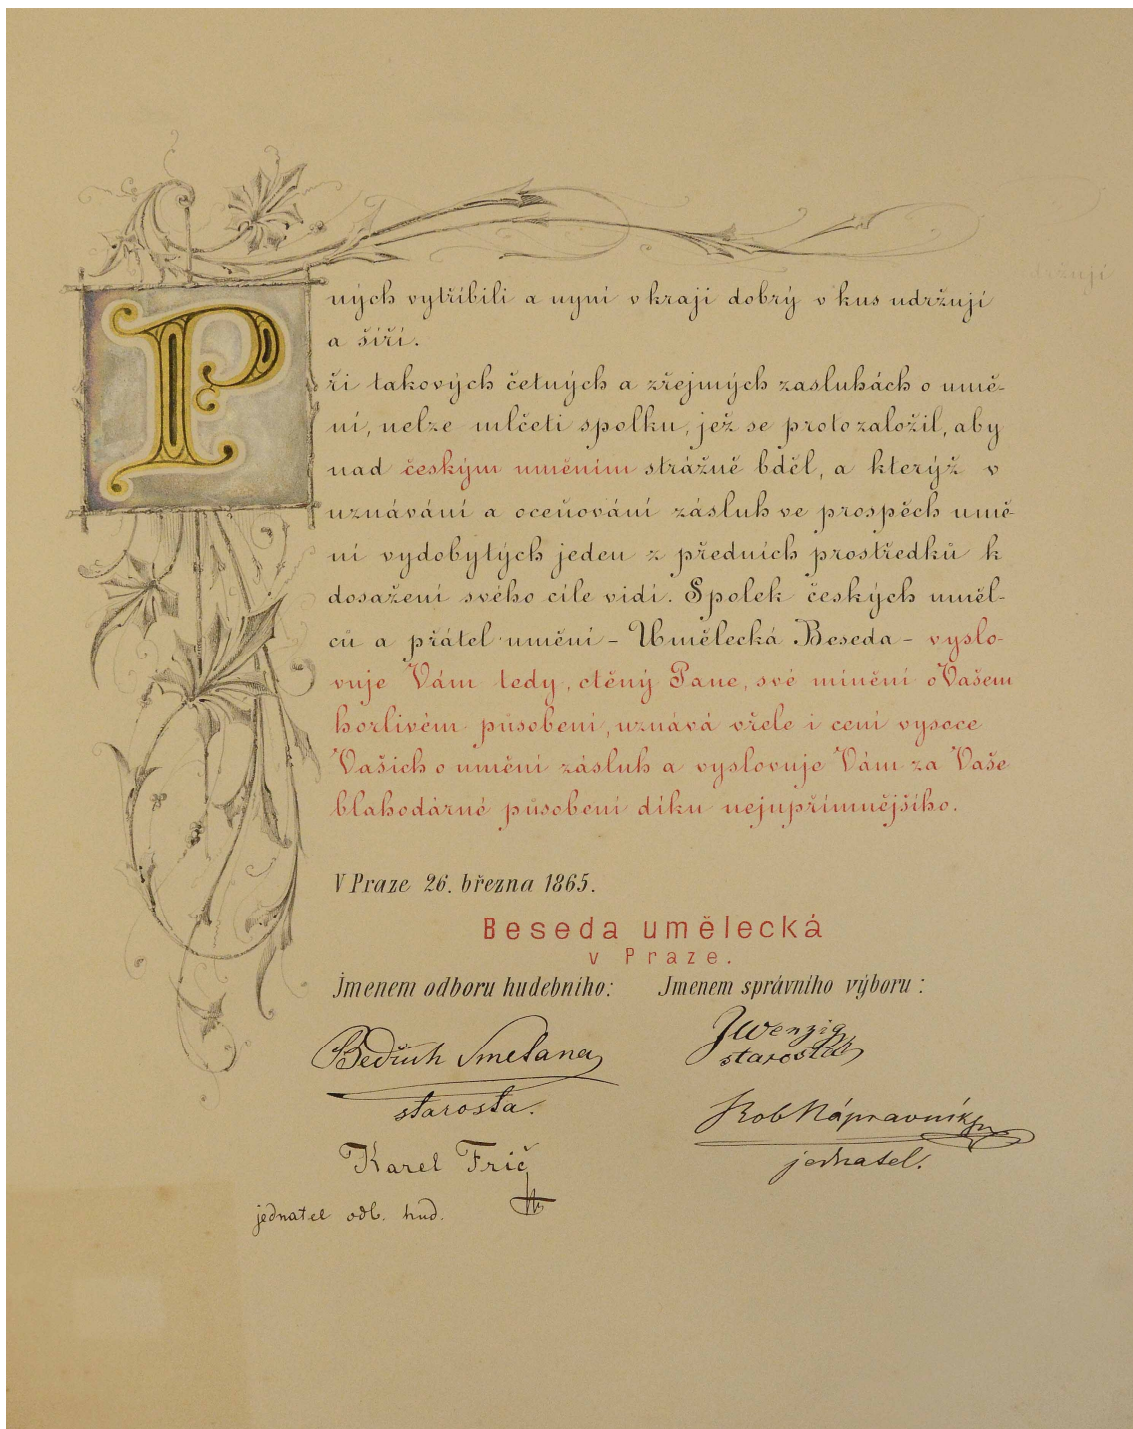 ných vytříbili a nyní v kraji dobrý vkus udržují
a šíří.
Při takových četných a zřejmých zasluhách o umě-
ní, nelze mlčeti spolku, jež se proto založil, aby
nad českým uměním strážně bděl, a kterýž v
uznávání a oceňování zásluh ve prospěch umě-
ní vydobytých jeden z předních prostředků k
dosažení svého cíle vidí. Spolek českých uměl-
ců a přátel umění – Umělecká Beseda – vyslo-
vuje Vám tedy, ctěný Pane, své mínění o Vašem
horlivém působení, uznává vřele i cení vysoce
Vašich o umění zásluh a vyslovuje Vám za Vaše
blahodárné působení díku nejupřímnějšího.
V Praze 26. března 1865.
Beseda umělecká
v Praze.
Jmenem odboru hudebního: Jmenem správního výboru:
Bedřich Smetana
starosta.
JWenzig
starosta
Karel Frič
jednatel odb. hud.
Rob Nápravník
jednatel.